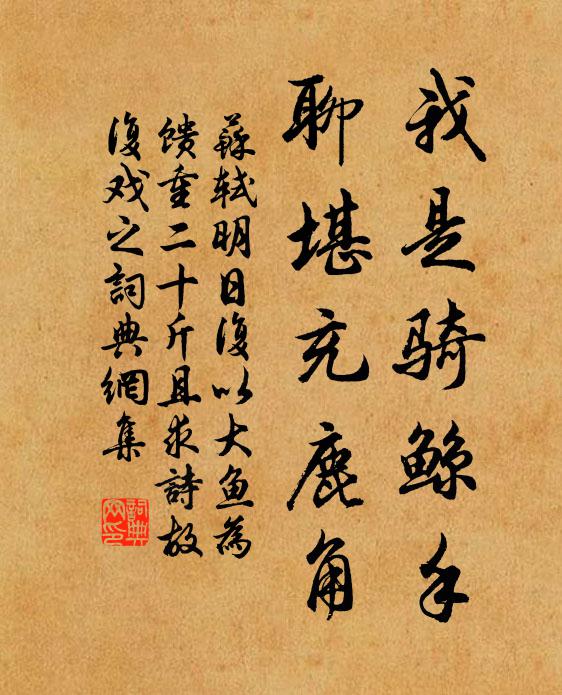 我是骑鲸手
聊堪充鹿角
蘇轼明日復以大鱼為
馈重二十斤且求詩故
復戏之詞典網集
詞典
网印